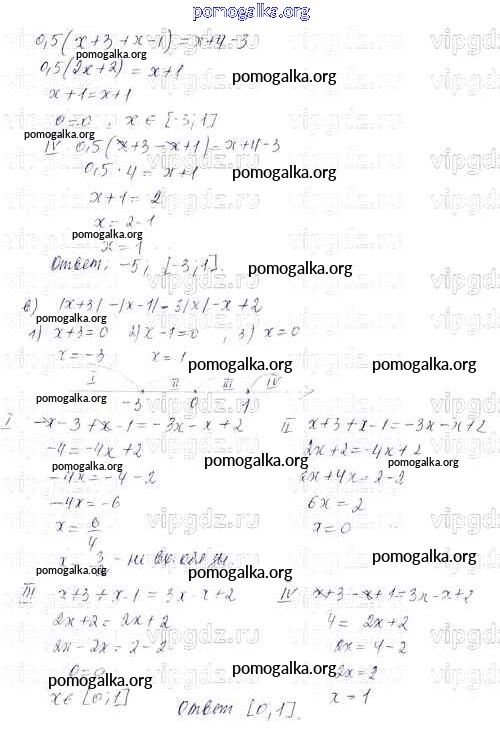 pomogalka.org
0,5(x+3+x-1)=x+4-3
pomogalka.org
0,5(2x+2)=x+1
pomogalka.org
x+1=x+1
pomogalka.org
0=0, x∈[-3;1]
pomogalka.org
IV 0,5(x+3-x+1)=x+4-3
0,5·4=x+1
pomogalka.org
x+1=2
x=2-1
pomogalka.org
x=1
Ответ. -5; [-3;1].
pomogalka.org
в) |x+3|-|x-1|=3|x|-x+2
pomogalka.org
1) x+3=0 2) x-1=0, 3) x=0
x=-3 x=1
pomogalka.org pomogalka.org
I II III IV
-3 0 1
pomogalka.org
I -x-3+x-1=-3x-x+2
-4=-4x+2
-4x=-4-2
-4x=-6
x=6/4
x=3/2 - не
II x+3+x-1=-3x-x+2
2x+2=-4x+2
2x+4x=2-2
6x=2
x=0
pomogalka.org pomogalka.org
pomogalka.org
pomogalka.org pomogalka.org
III x+3+x-1=3x-x+2
2x+2=2x+2
2x-2x=2-2
0=0
x∈[0;1]
IV x+3-x+1=3x-x+2
4=2x+2
2x=4-2
2x=2
x=1
pomogalka.org
pomogalka.org pomogalka.org
Ответ [0,1].